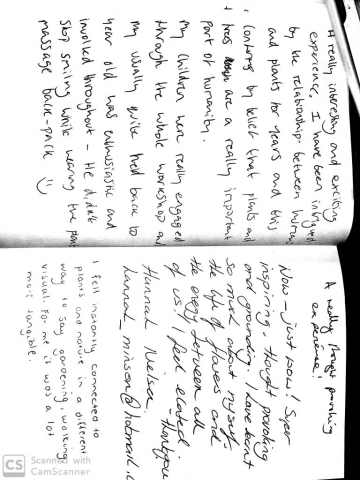 A really interesting and exciting
experience. I have been intrigued
by the relationship between humans
and plants for years and this
confirms my belief that plants and
trees are a really important
part of humanity.
My children were really engaged
through the whole workshop and
my usually quite hard
year old was enthusiastic and
involved throughout - He didn't
stop smiling while wearing the plant
massage back-pack
A really thought provoking
experience!
Wow - just wow! Super
inspiring, thought provoking
and grounding. I have learnt
so much about myself,
the life of flowers and
the energy between all
of us! I feel elated.
- thankyou
Hannah
I fell instantly connected to
plants and nature in a different
way to say gardening, walking
visual. For me it was a lot
more tangible.
CS Scanned with
CamScanner